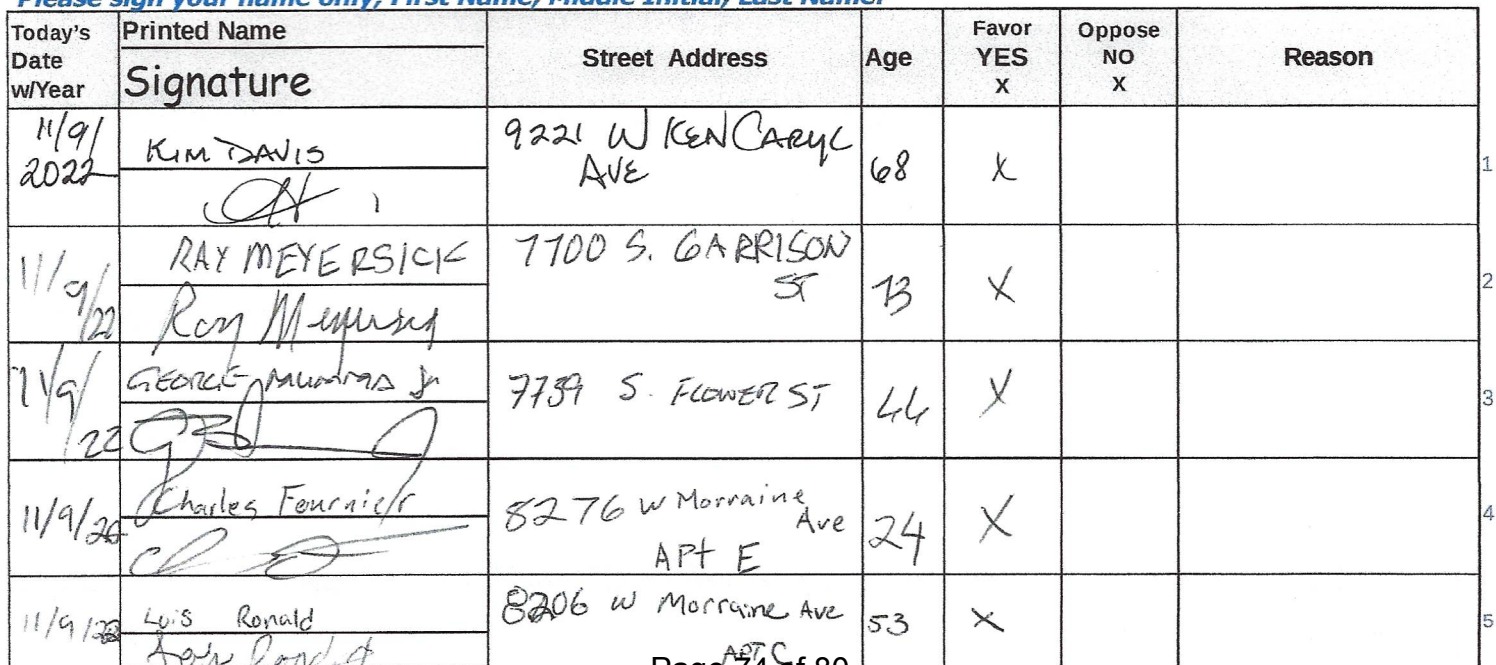 Please sign your name only, First Name, Middle Initial, Last Name.
Today's Date w/Year Printed Name Signature Street Address Age Favor YES X Oppose NO X Reason
11/9/2022 KIM DAVIS 9221 W KEN CARYL AVE 68 X 1
11/9/22 RAY MEYERSICK 7700 S. GARRISON ST 73 X 2
Ray Meyersick
11/9/22 GEORGE MUMMA Jr 7739 S. FLOWER ST 44 X 3
11/9/ Charles Fournier 8276 W Morraine Ave APt E 24 X 4
11/9/ Lois Ronald 8206 W Morraine Ave APT C 53 X 5
Lois Ronald
Page 74 of 80